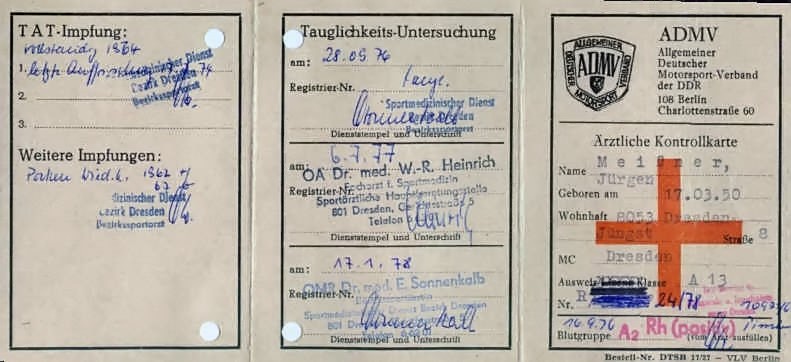 TAT-Impfung:
vollständig 1964
1. letzte
Sportmedizinischer Dienst
Bezirk Dresden
Bezirkssportarzt
2.
3.
Weitere Impfungen:
Pocken
Sportmedizinischer Dienst
Bezirk Dresden
Bezirkssportarzt
Tauglichkeits-Untersuchung
am: 28.09.76
Registrier-Nr.
Sportmedizinischer Dienst
Bezirk Dresden
Bezirkssportarzt
Dienststempel und Unterschrift
am: 6.7.77
OA Dr. med. W.-R. Heinrich
Registrier-Nr.
Facharzt f. Sportmedizin
Sportärztliche Hauptberatungsstelle
801 Dresden,
Telefon
Dienststempel und Unterschrift
am: 17.1.78
OMR Dr. med. E. Sonnenkalb
Registrier-Nr.
Bezirkssportarzt
Sportmedizinischer Dienst Bezirk Dresden
801 Dresden
Telefon
Dienststempel und Unterschrift
ADMV
Allgemeiner
Deutscher
Motorsport-Verband
der DDR
108 Berlin
Charlottenstraße 60
ALLGEMEINER
DEUTSCHER
ADMV
MOTORSPORT
VERBAND
Ärztliche Kontrollkarte
Name Meißner,
Jürgen
Geboren am 17.03.50
Wohnhaft 8053 Dresden-
Jüngst Straße 8
MC Dresden
Ausweis Klasse A 13
Nr. R 24/78
16.9.76
Blutgruppe A2 Rh (positiv) (vom Arzt ausfüllen)
Bestell-Nr. DTSB 17/32 — VLV Berlin